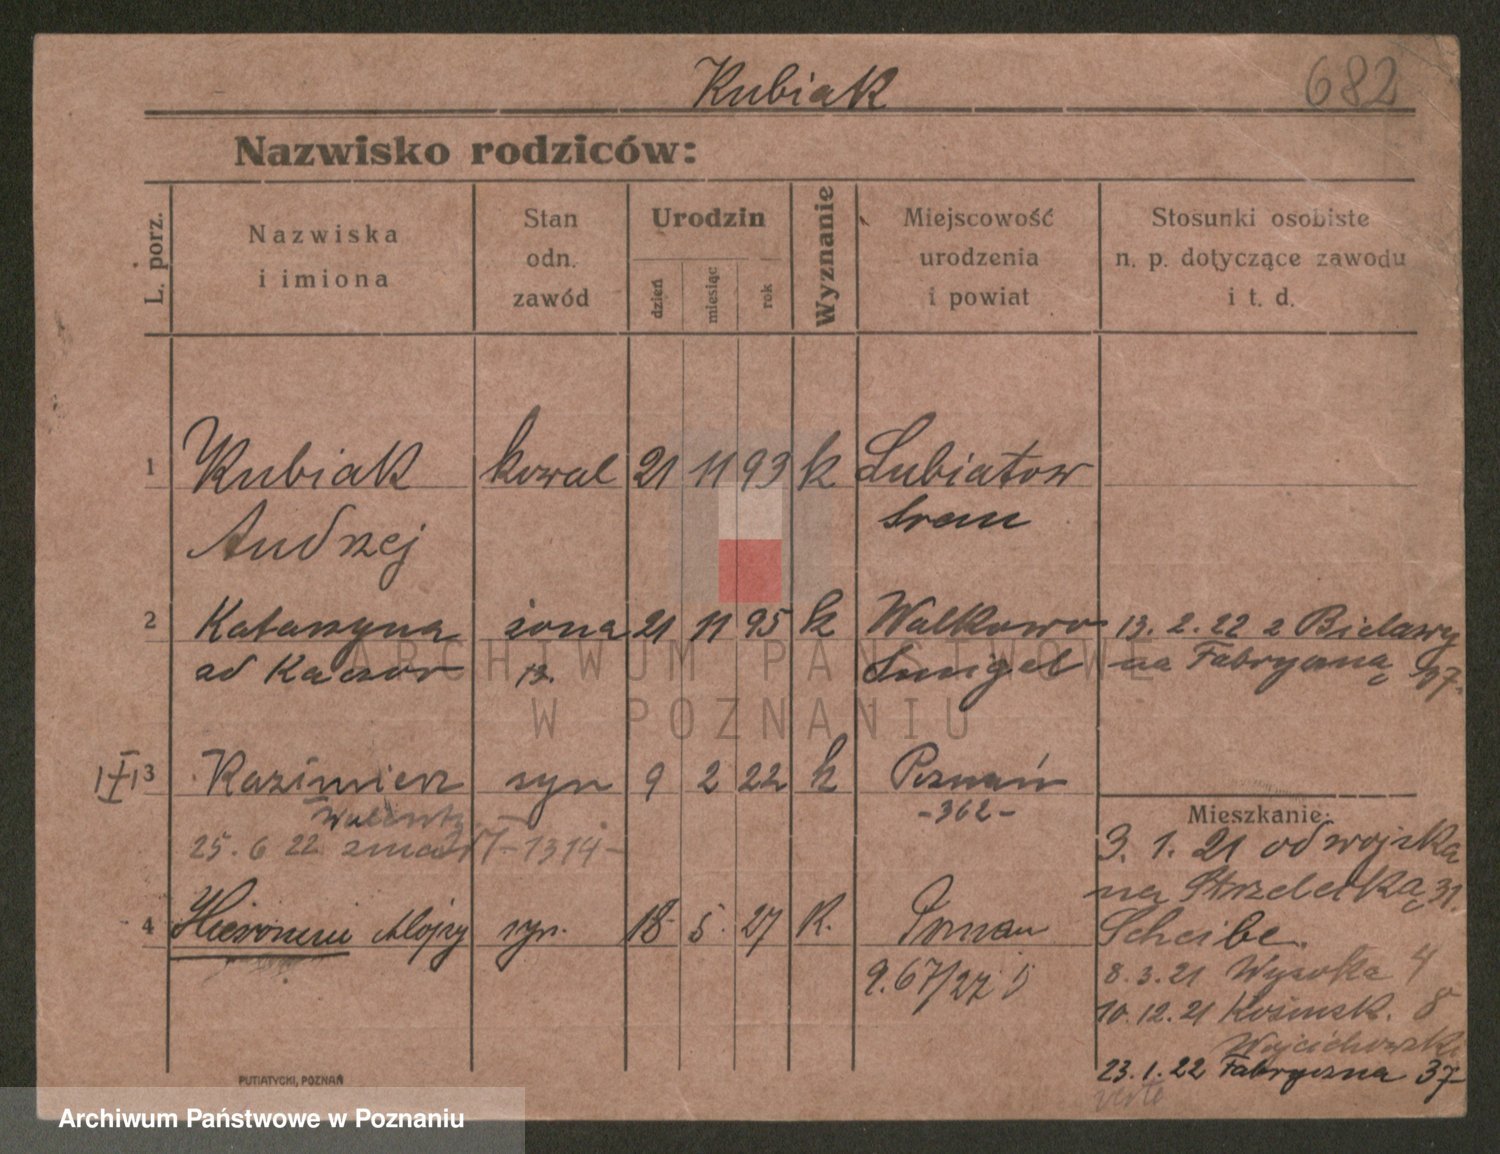 Kubiak
682
Nazwisko rodziców:
L. porz.
Nazwiska
i imiona
Stan
odn.
zawód
Urodzin
dzień
miesiąc
rok
Wyznanie
Miejscowość
urodzenia
i powiat
Stosunki osobiste
n. p. dotyczące zawodu
i t. d.
1 Kubiak kowal 21 11 93 k Lubiatow
Andrzej Srem
2 Katarzyna żona 21 11 95 k Walkowo 13. 2. 22 z Bielawy
od Kaczor 13. Smigel na Fabryczną 37.
3 Kazimierz syn 9 2 22 k Poznań
Walenty -362-
25. 6 22 zmarł -1314-
Mieszkanie:
3. 1. 21 od wojska
na Strzelecką 31.
4 Hieronim Alojzy syn. 18 5. 27 K. Poznan
Scheibe.
967/27
8. 3. 21 Wysoka 4
10. 12. 21 Kosinsk. 8
Wojciechowski
23. 1. 22 Fabryczna 37-
verte
PUTIATYCKI, POZNAŃ
ARCHIWUM PAŃSTWOWE
W POZNANIU
Archiwum Państwowe w Poznaniu